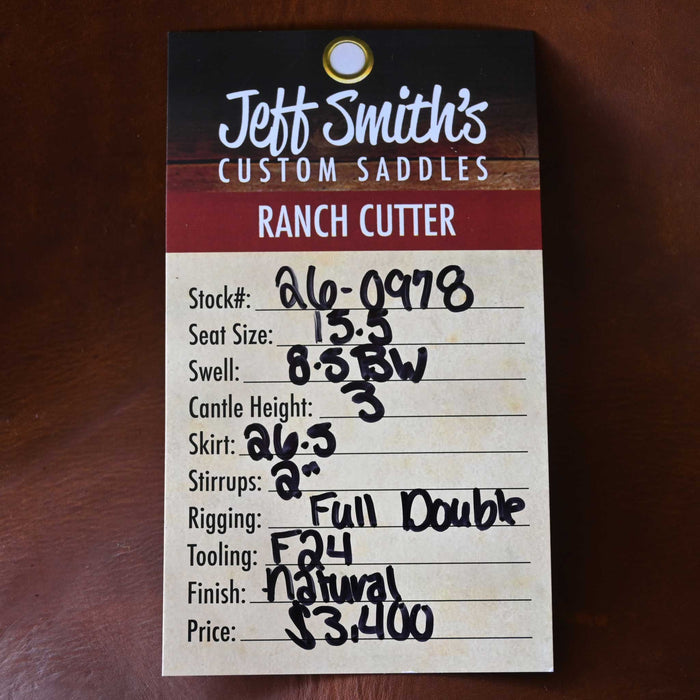 Jeff Smith's
CUSTOM SADDLES
RANCH CUTTER
Stock#: 26-0978
Seat Size: 15.5
Swell: 8.5 BW
Cantle Height: 3
Skirt: 26.5
Stirrups: 2"
Rigging: Full Double
Tooling: F24
Finish: Natural
Price: $3,400